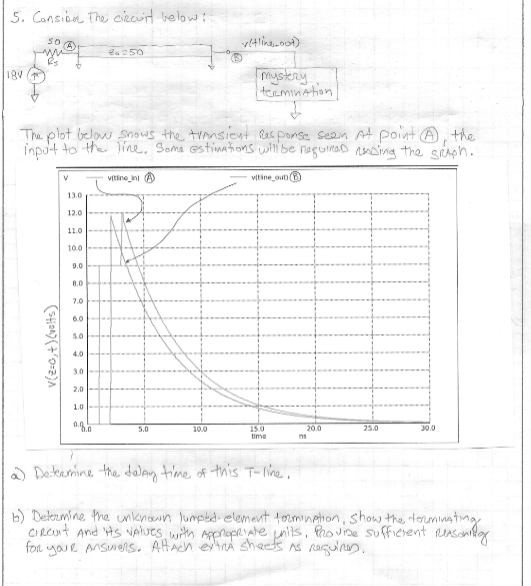 5. Consider The circuit below:
50 Ⓐ
Rs
Z₀=50
v(tline_out)
Ⓑ
18V
mystery
termination
The plot below shows the transient response seen at point Ⓐ, the
input to the line. Some estimations will be required reading the graph.
V v(tline_in) Ⓐ v(tline_out) Ⓑ
13.0
12.0
11.0
10.0
9.0
8.0
7.0
6.0
5.0
4.0
3.0
2.0
1.0
0.0
V(z=0,t)(volts)
0.0 5.0 10.0 15.0 20.0 25.0 30.0
time ns
a) Determine the delay time of this T-line.
b) Determine the unknown lumped-element termination, show the terminating
circuit and its values with appropriate units. Provide sufficient reasoning
for your answers. Attach extra sheets as required.